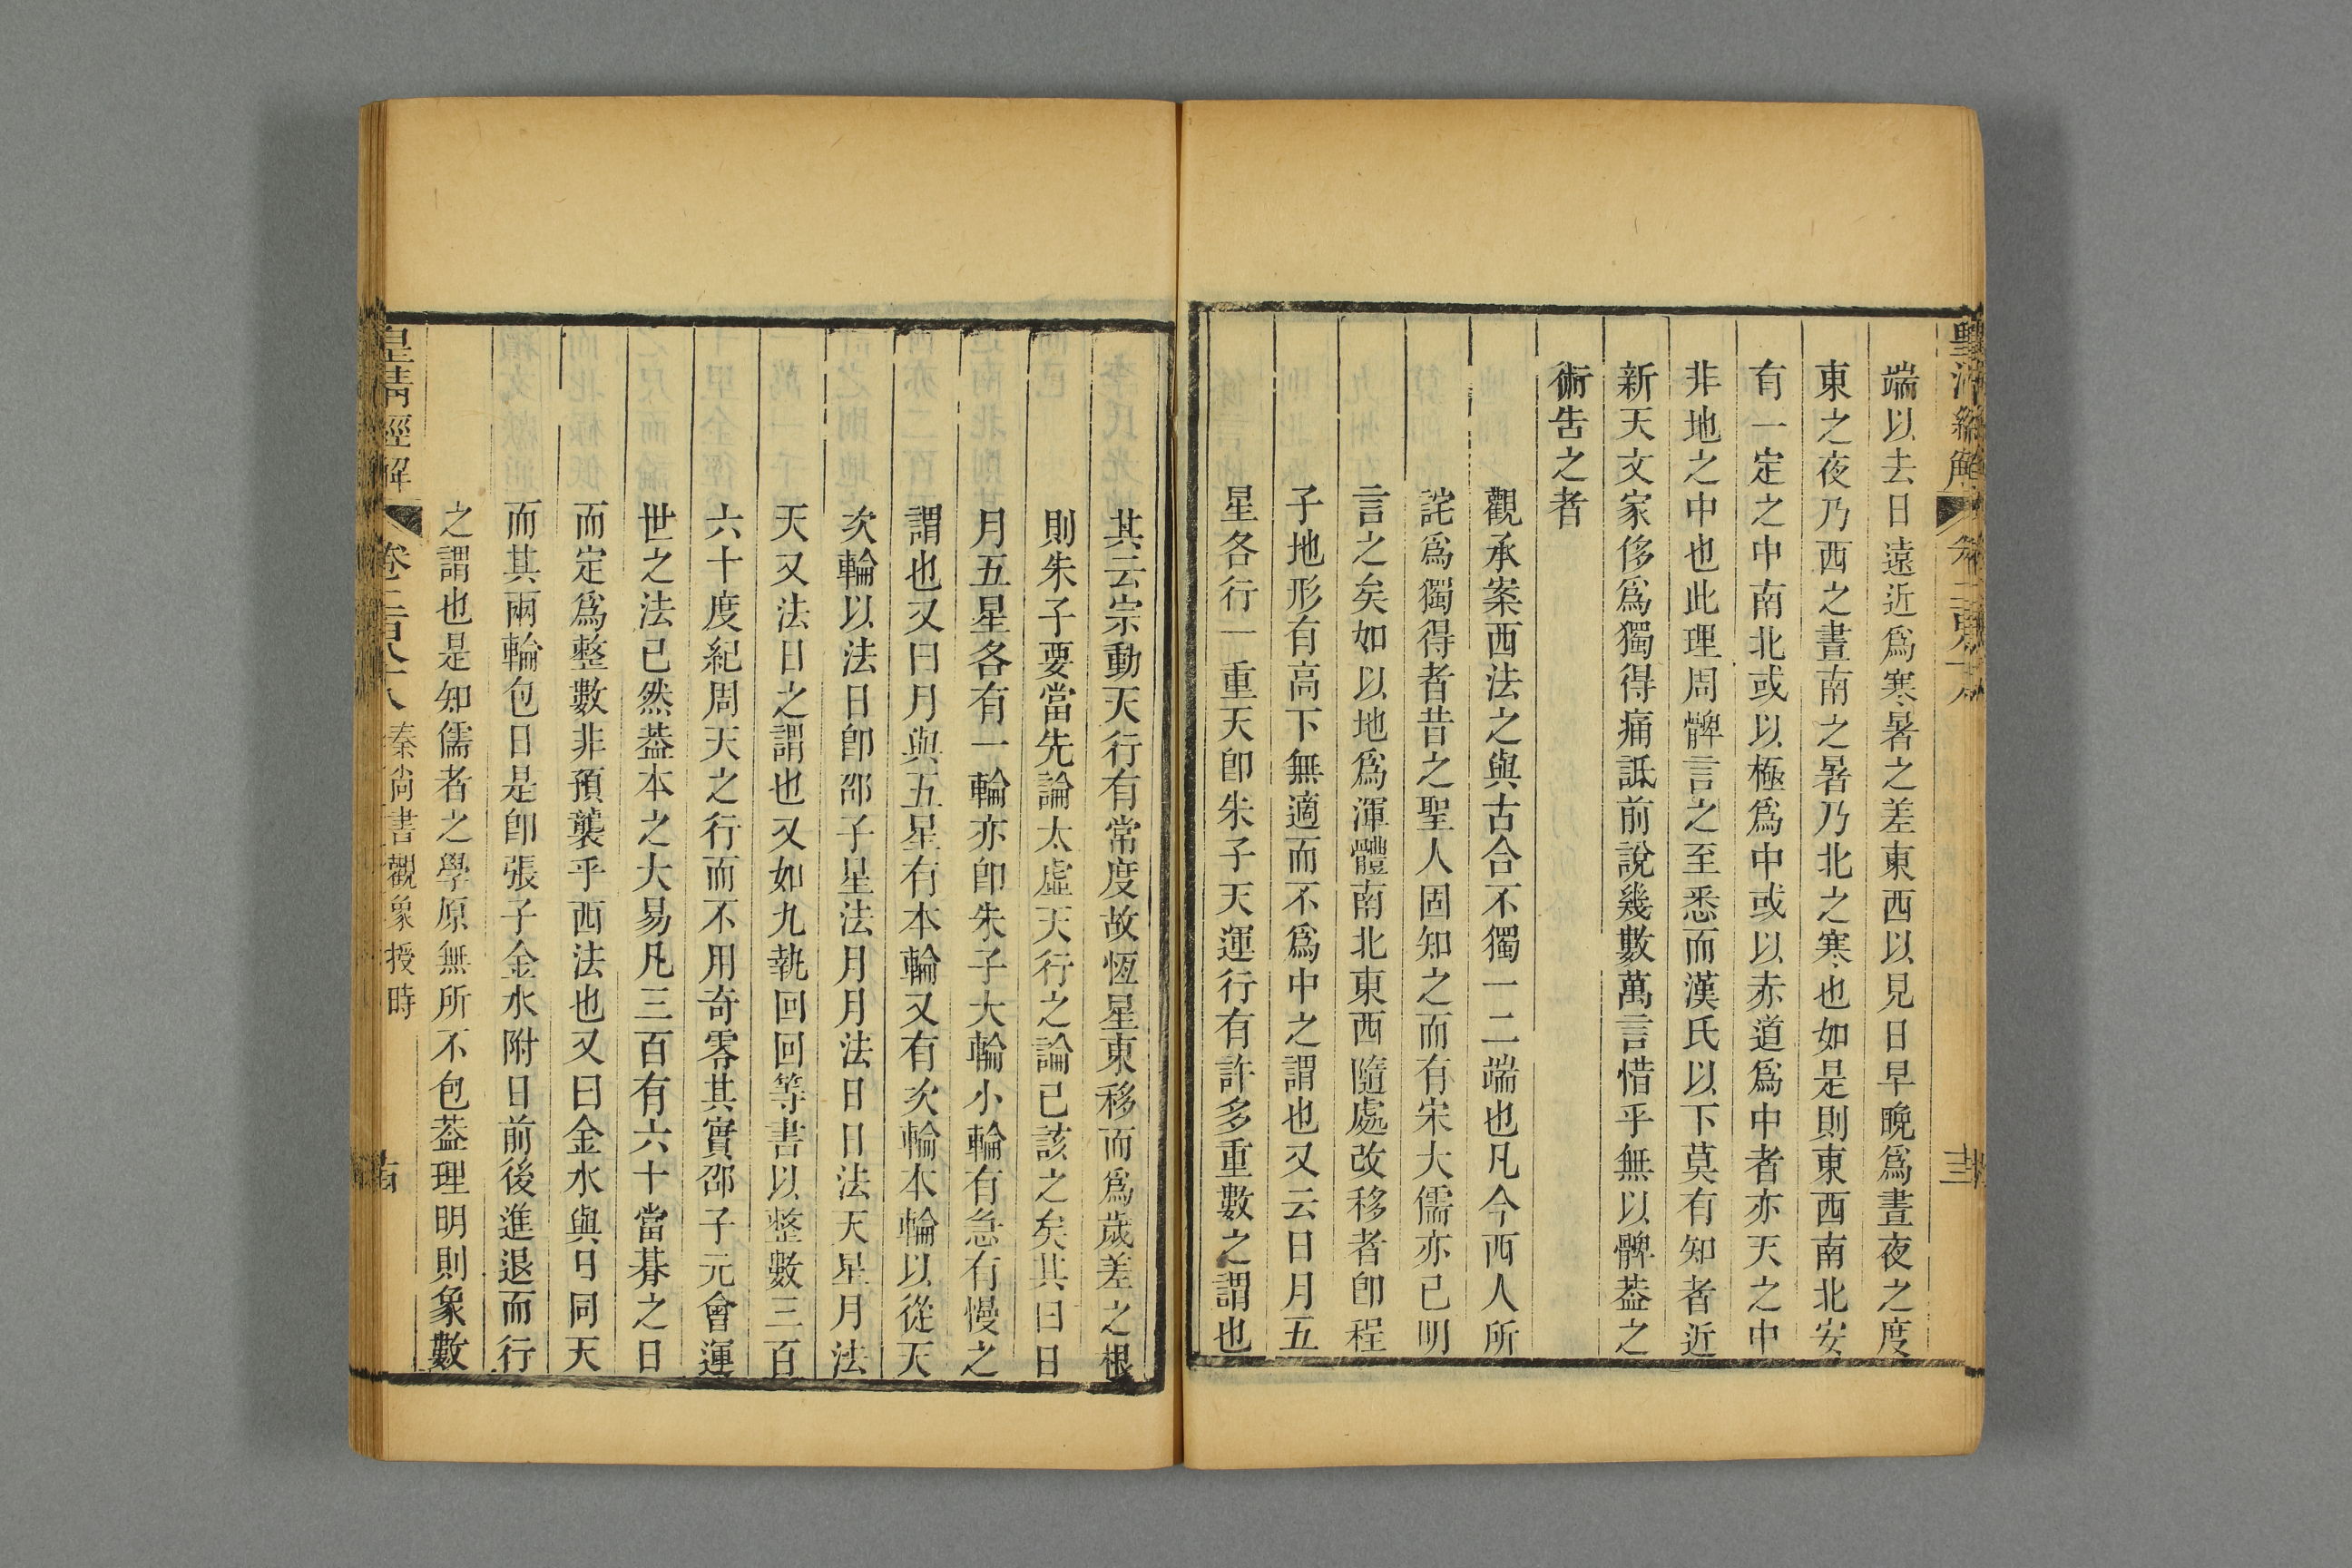 端以去日遠近爲寒暑之差東西以見日早晚爲晝夜之度
東之夜乃西之晝南之暑乃北之寒也如是則東西南北安
有一定之中南北或以極爲中或以赤道爲中者亦天之中
非地之中也此理周髀言之至悉而漢氏以下莫有知者近
新天文家侈爲獨得痛詆前說幾數萬言惜乎無以髀葢之
術告之者
觀承案西法之與古合不獨一二端也凡今西人所
詫爲獨得者昔之聖人固知之而有宋大儒亦已明
言之矣如以地爲渾體南北東西隨處改移者卽程
子地形有高下無適而不爲中之謂也又云日月五
星各行一重天卽朱子天運行有許多重數之謂也
其云宗動天行有常度故恆星東移而爲歲差之根
則朱子要當先論太虛天行之論已該之矣其曰日
月五星各有一輪亦卽朱子大輪小輪有急有慢之
謂也又曰月與五星有本輪又有次輪本輪以從天
次輪以法日卽邵子星法月月法日日法天星月法
天又法日之謂也又如九執回回等書以整數三百
六十度紀周天之行而不用奇零其實邵子元會運
世之法已然葢本之大易凡三百有六十當朞之日
而定爲整數非預襲乎西法也又曰金水與日同天
而其兩輪包日是卽張子金水附日前後進退而行
之謂也是知儒者之學原無所不包葢理明則象數
皇清經解 卷二百八十八 秦尚書觀象授時